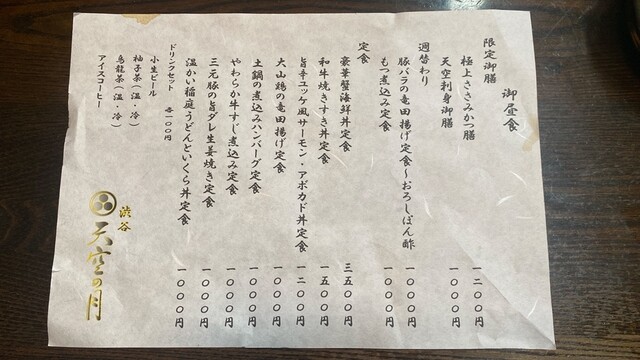 御昼食
限定御膳
極上ささみかつ膳 一二〇〇円
天空刺身御膳 一〇〇〇円
週替わり
豚バラの竜田揚げ定食～おろしぽん酢 一〇〇〇円
もつ煮込み定食 一〇〇〇円
定食
豪華蟹海鮮丼定食 三五〇〇円
和牛焼きすき丼定食 一五〇〇円
旨辛ユッケ風サーモン・アボカド丼定食 一二〇〇円
大山鶏の竜田揚げ定食 一〇〇〇円
土鍋の煮込みハンバーグ定食 一〇〇〇円
やわらか牛すじ煮込み定食 一〇〇〇円
三元豚の旨ダレ生姜焼き定食 一〇〇〇円
温かい稲庭うどんといくら丼定食 一〇〇〇円
ドリンクセット 各一〇〇円
小生ビール
柚子茶（温・冷）
烏龍茶（温・冷）
アイスコーヒー
渋谷
天空の月